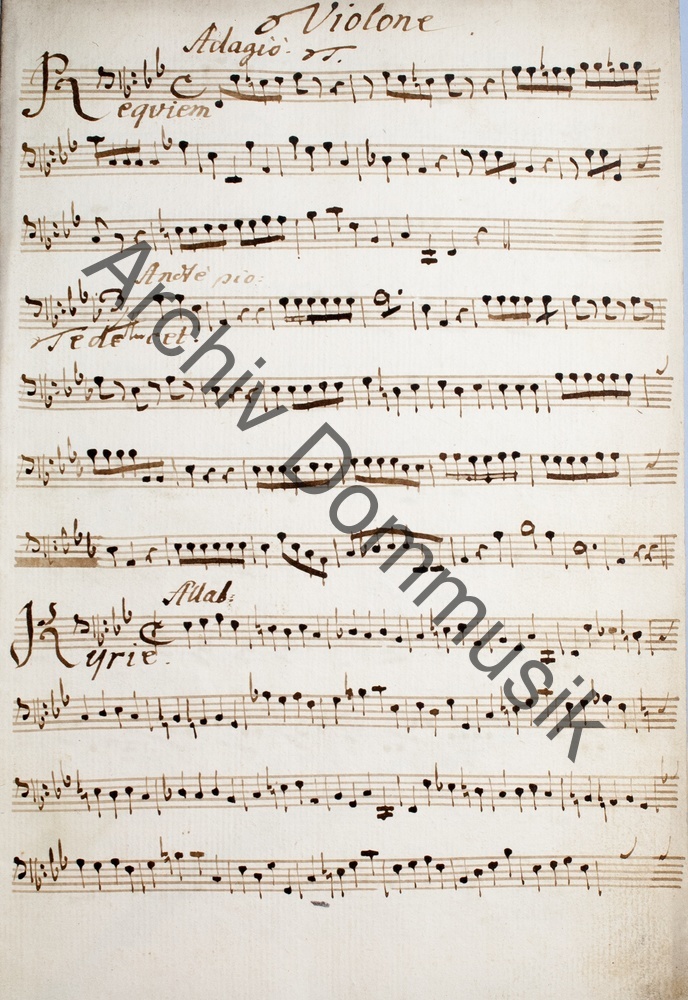 Violone
Adagiò.
Requiem
And<sup>te</sup> pio:
Te decet.
Allab:
Kyrie.
Archiv Dommusik